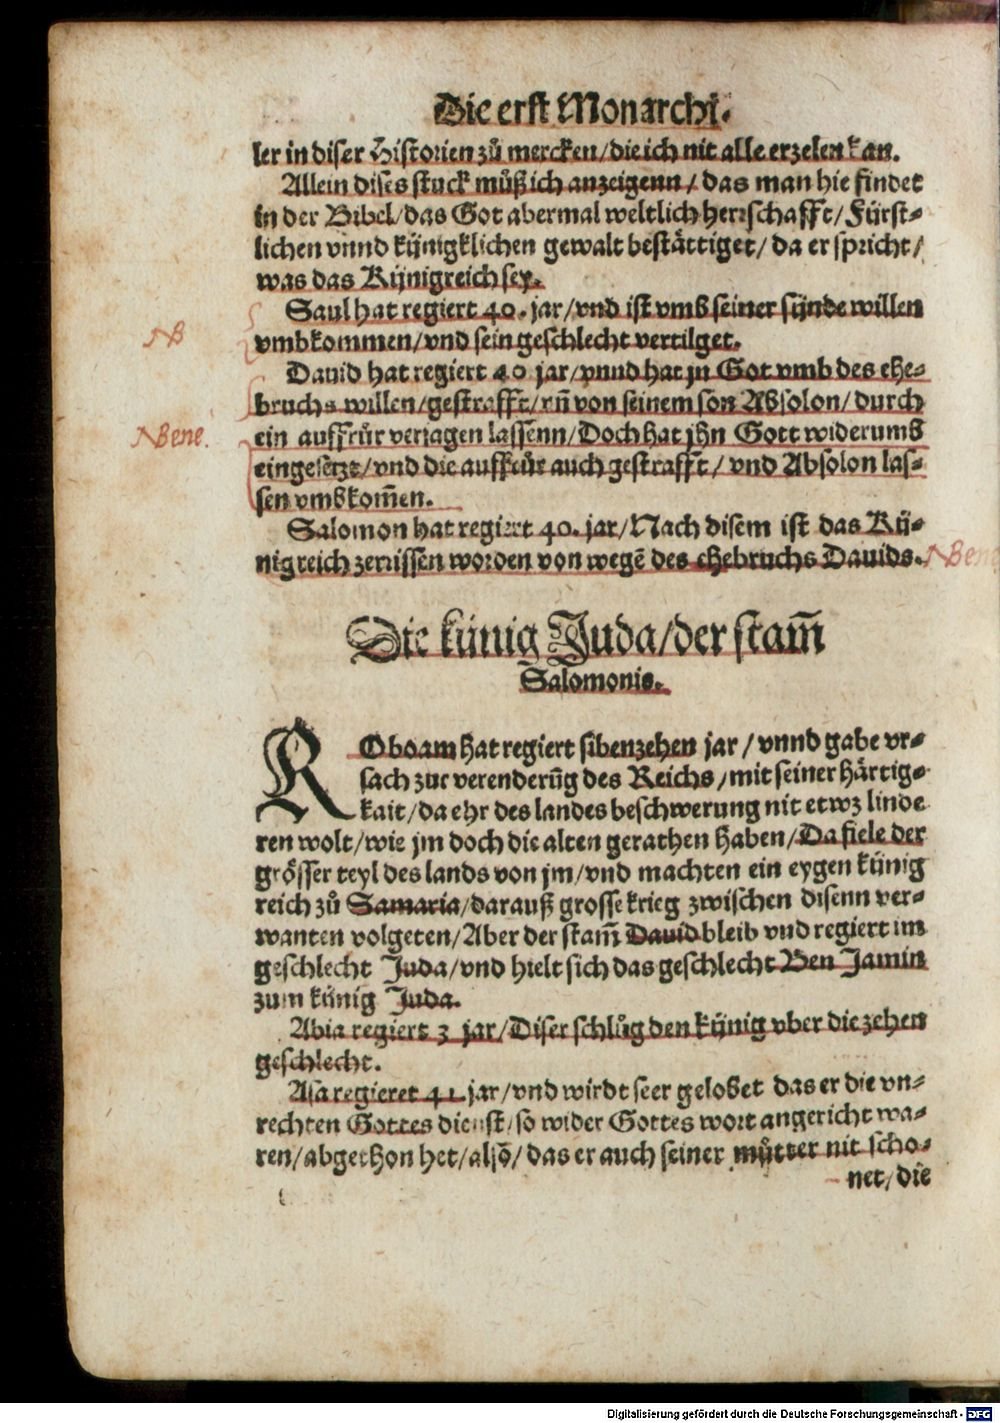 Die erst Monarchi.
ler in diser Historien zů mercken/die ich nit alle erzelen kan.
Allein dises stuck můß ich anzeigenn/ das man hie findet
in der Bibel/das Got abermal weltlich herrschafft/Fürst-
lichen vnnd künigklichen gewalt bestättiget/ da er spricht/
was das Künigreich sey.
Saul hat regiert 40. jar/vnd ist vmb seiner sünde willen
NB
vmbkommen/vnd sein geschlecht vertilget.
Dauid hat regiert 40 jar/vnnd hat jn Got vmb des ehe-
bruchs willen/gestrafft/vñ von seinem son Absolon/durch
NBene.
ein auffrůr verjagen lassenn/Doch hat jhn Gott widerumb
eingesetzt/vnd die auffrůr auch gestrafft/ vnd Absolon las-
sen vmbkom̃en.
Salomon hat regiert 40. jar/Nach disem ist das Kü-
nigreich zerrissen worden von wegẽ des ehebruchs Dauids.
NBene
Die künig Juda/der stam̃
Salomonis.
ROboam hat regiert sibenzehen jar / vnnd gabe vr-
sach zur verenderũg des Reichs/mit seiner härtig-
kait/da ehr des landes beschwerung nit etwz linde
ren wolt/wie jm doch die alten gerathen haben/Da fiele der
grösser teyl des lands von jm/vnd machten ein eygen künig
reich zů Samaria/darauß grosse krieg zwischen disenn ver-
wanten volgeten/Aber der stam̃ Dauid bleib vnd regiert im
geschlecht Juda/vnd hielt sich das geschlecht Ben Jamin
zum künig Juda.
Abia regiert 3 jar/Diser schlůg den künig vber die zehen
geschlecht.
Asa regieret 41 jar/vnd wirdt seer gelobet das er die vn-
rechten Gottes dienst/so wider Gottes wort angericht wa-
ren/abgethon het/alsõ/das er auch seiner můtter nit scho-
net/die
Digitalisierung gefördert durch die Deutsche Forschungsgemeinschaft - DFG